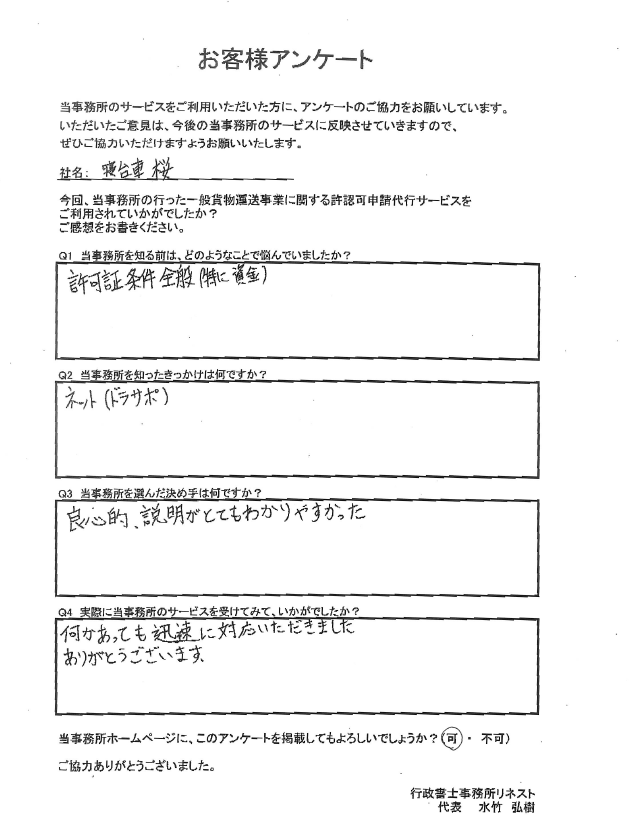 お客様アンケート
当事務所のサービスをご利用いただいた方に、アンケートのご協力をお願いしています。
いただいたご意見は、今後の当事務所のサービスに反映させていきますので、
ぜひご協力いただけますようお願いいたします。
社名: 寝台車 桜
今回、当事務所の行った一般貨物運送事業に関する許認可申請代行サービスを
ご利用されていかがでしたか？
ご感想をお書きください。
Q1 当事務所を知る前は、どのようなことで悩んでいましたか？
許可証条件全般(特に資金)
Q2 当事務所を知ったきっかけは何ですか？
ネット(ドラサポ)
Q3 当事務所を選んだ決め手は何ですか？
良心的、説明がとてもわかりやすかった
Q4 実際に当事務所のサービスを受けてみて、いかがでしたか？
何かあっても迅速に対応いただきました
ありがとうございます。
当事務所ホームページに、このアンケートを掲載してもよろしいでしょうか？(可・ 不可)
ご協力ありがとうございました。
行政書士事務所リネスト
代表 水竹 弘樹